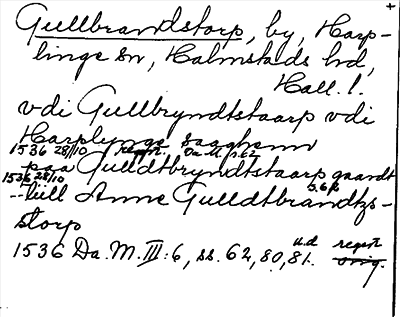 Gullbrandstorp, by, Harp-
linge sn, Halmstads hd,
Hall. l.
vdi Gullbryndtstaarp vdi
Harplynge saaghenn
1536 28/10 regest. Da. M. s. 62
paa Gulldtbryndtstaarp gaardt
1536 28/10 s. 68
-- till Anne Gulldtbrandtzs-
storp
1536 Da. M. III: 6, ss. 62, 80, 81. u.d. regest
orig.